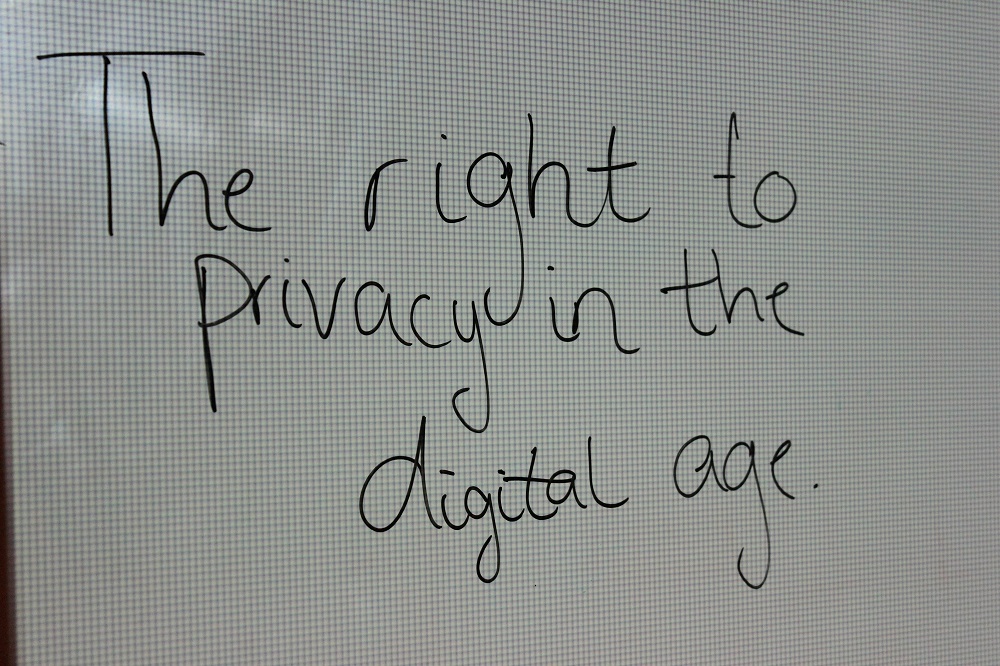 The right to
privacy in the
digital age.